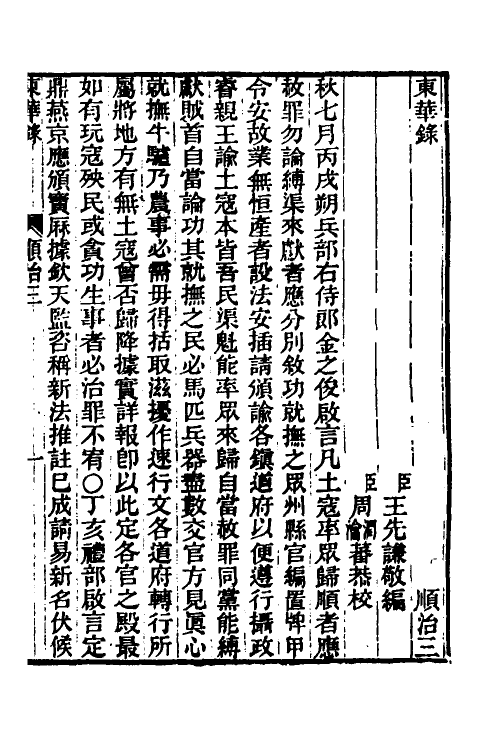 東華錄 順治三
臣王先謙敬編
臣周潤蕃瀹蕃恭校
秋七月丙戌朔兵部右侍郎金之俊啟言凡土寇率眾歸順者應
赦罪勿論縛渠來獻者應分別敘功就撫之眾州縣官編置牌甲
令安故業無恒產者設法安插請頒諭各鎮道府以便遵行攝政
睿親王諭土寇本皆吾民渠魁能率眾來歸自當赦罪同黨能縛
獻賊首自當論功其就撫之民必馬匹兵器盡數交官方見眞心
就撫牛驢乃農事必需毋得括取滋擾作速行文各道府轉行所
屬將地方有無土寇曾否歸降據實詳報卽以此定各官之殿最
如有玩寇殃民或貪功生事者必治罪不宥〇丁亥禮部啟言定
鼎燕京應頒寶厤據欽天監咨稱新法推註已成請易新名伏候
東華錄 順治三 一